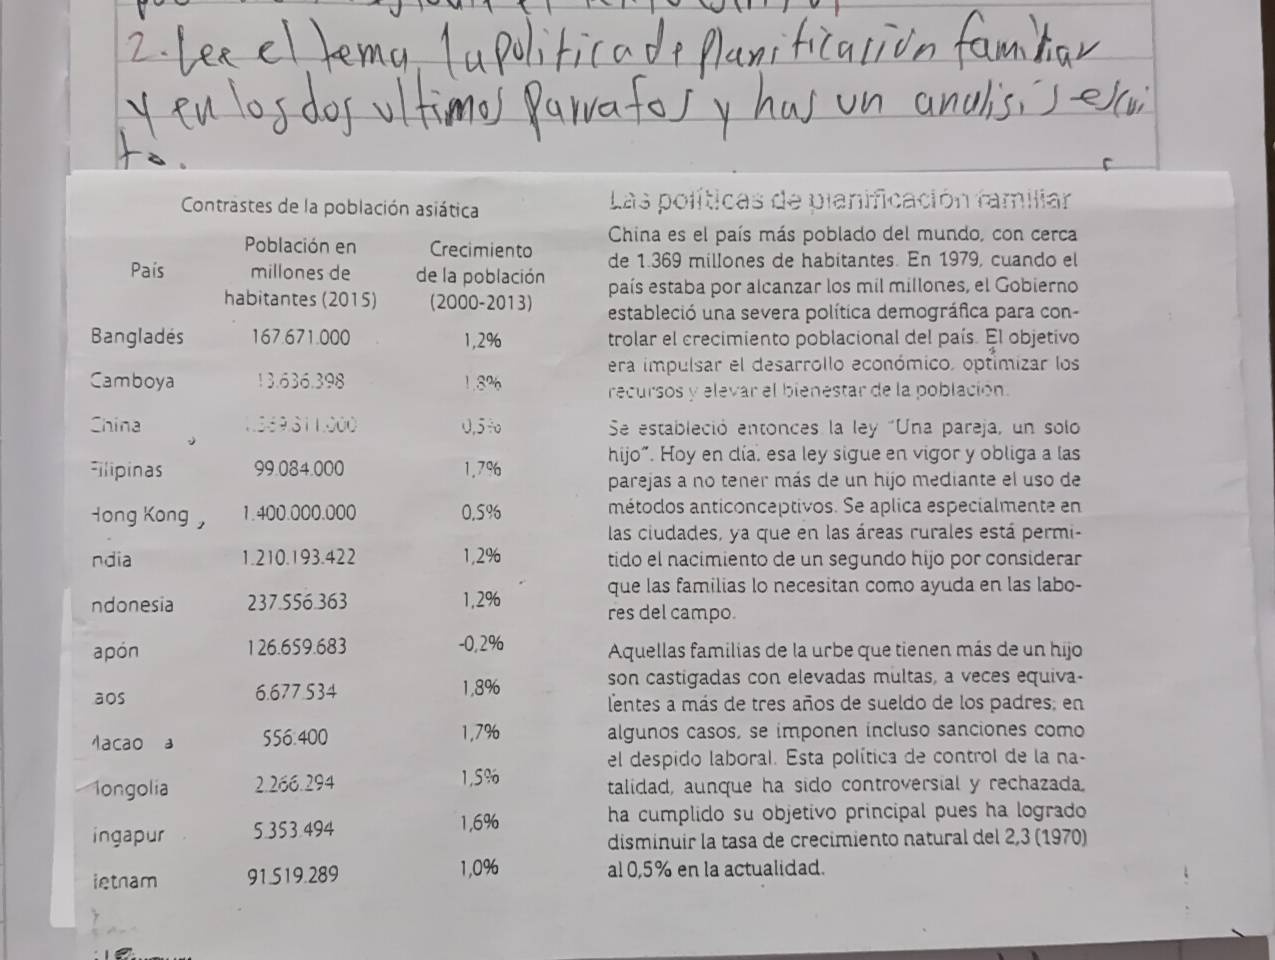 2. Lee el tema la politica de planificación familiar
y en los dos ultimos Parrafos y has un analisis escri
to.
Contrastes de la población asiática
País
Población en
millones de
habitantes (2015)
Crecimiento
de la población
(2000-2013)
Bangladés 167.671.000 1,2%
Camboya 13.636.398 1,8%
China 0,5%
Filipinas 99.084.000 1,7%
Hong Kong 1.400.000.000 0,5%
ndia 1.210.193.422 1,2%
ndonesia 237.556.363 1,2%
apón 126.659.683 -0,2%
aos 6.677.534 1,8%
Macao 556.400 1,7%
Mongolia 2.266.294 1,5%
ingapur 5.353.494 1,6%
ietnam 91.519.289 1,0%
Las políticas de planificación familiar
China es el país más poblado del mundo, con cerca
de 1.369 millones de habitantes. En 1979, cuando el
país estaba por alcanzar los mil millones, el Gobierno
estableció una severa política demográfica para con-
trolar el crecimiento poblacional del país. El objetivo
era impulsar el desarrollo económico, optimizar los
recursos y elevar el bienestar de la población.
Se estableció entonces la ley "Una pareja, un solo
hijo". Hoy en día, esa ley sigue en vigor y obliga a las
parejas a no tener más de un hijo mediante el uso de
métodos anticonceptivos. Se aplica especialmente en
las ciudades, ya que en las áreas rurales está permi-
tido el nacimiento de un segundo hijo por considerar
que las familias lo necesitan como ayuda en las labo-
res del campo.
Aquellas familias de la urbe que tienen más de un hijo
son castigadas con elevadas multas, a veces equiva-
lentes a más de tres años de sueldo de los padres; en
algunos casos, se imponen incluso sanciones como
el despido laboral. Esta política de control de la na-
talidad, aunque ha sido controversial y rechazada,
ha cumplido su objetivo principal pues ha logrado
disminuir la tasa de crecimiento natural del 2,3 (1970)
al 0,5% en la actualidad.